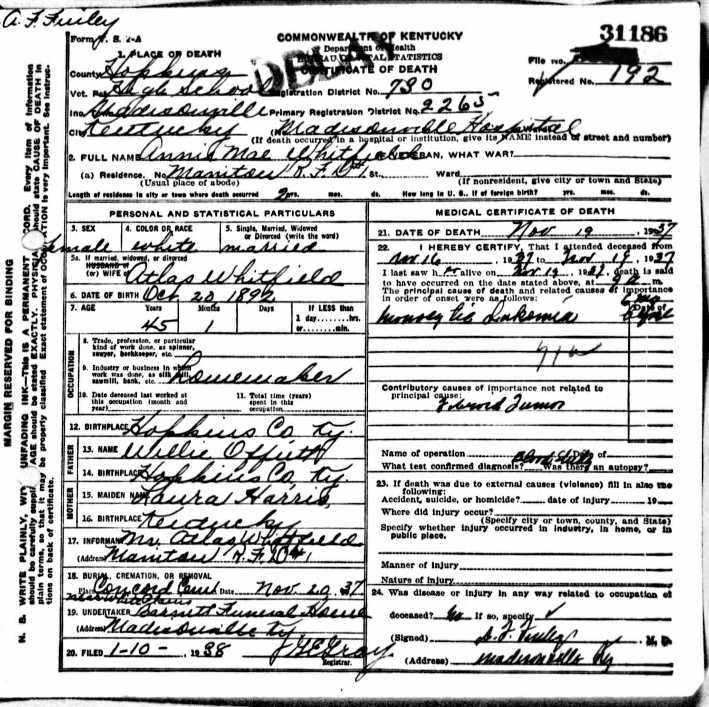 A. F. Finley
Form V. S. 1-A
COMMONWEALTH OF KENTUCKY
Department of Health
BUREAU OF VITAL STATISTICS
CERTIFICATE OF DEATH
DELAY
31186
File No.
Registered No. 192
1. PLACE OF DEATH
County Hopkins
Vot. Pct. High School Registration District No. 730
Inc. Madisonville Primary Registration District No. 2265
City Kentucky (No. Madisonville Hospital
(If death occurred in a hospital or institution, give its NAME instead of street and number)
2. FULL NAME Annie Mae Whitfield VETERAN, WHAT WAR?
(a) Residence. No. Manitou R. F. D. #1 St., Ward
(Usual place of abode) (If nonresident, give city or town and State)
Length of residence in city or town where death occurred yrs. mos. ds. How long in U. S., if of foreign birth? yrs. mos. ds.
PERSONAL AND STATISTICAL PARTICULARS
3. SEX 4. COLOR OR RACE 5. Single, Married, Widowed
or Divorced (write the word)
female white married
5a. If married, widowed, or divorced
HUSBAND of
(or) WIFE of Atlas Whitfield
6. DATE OF BIRTH Oct 20 1892
7. AGE Years Months Days If LESS than
1 day......hrs.
or......min.
45 1
OCCUPATION
8. Trade, profession, or particular
kind of work done, as spinner,
sawyer, bookkeeper, etc.
9. Industry or business in which
work was done, as silk mill,
sawmill, bank, etc. homemaker
10. Date deceased last worked at
this occupation (month and
year)
11. Total time (years)
spent in this
occupation.
12. BIRTHPLACE Hopkins Co Ky.
FATHER
13. NAME Willie Offutt
14. BIRTHPLACE Hopkins Co Ky
MOTHER
15. MAIDEN NAME Laura Harris
16. BIRTHPLACE Kentucky
17. INFORMANT Mr. Atlas Whitfield
(Address) Manitou R. F. D #1
18. BURIAL, CREMATION, OR REMOVAL
Place Concord Cem Date Nov. 20, 37
19. UNDERTAKER Barnett Funeral Home
(Address) Madisonville Ky.
20. FILED 1-10-, 1938 Gray
Registrar.
MEDICAL CERTIFICATE OF DEATH
21. DATE OF DEATH Nov 19, 1937
22. I HEREBY CERTIFY, That I attended deceased from
Nov 16, 1937 to Nov 19, 1937
I last saw her alive on Nov 19, 1937, death is said
to have occurred on the date stated above, at m.
The principal cause of death and related causes of importance
in order of onset were as follows:
Date of
Contributory causes of importance not related to
principal cause:
Fibroid Tumor
Name of operation Date of
What test confirmed diagnosis? Was there an autopsy?
23. If death was due to external causes (violence) fill in also the
following:
Accident, suicide, or homicide? date of injury 19
Where did injury occur?
(Specify city or town, county, and State)
Specify whether injury occurred in industry, in home, or in
public place.
Manner of injury
Nature of injury
24. Was disease or injury in any way related to occupation of
deceased? No If so, specify
(Signed) A. F. Finley M. D.
(Address) Madisonville Ky
MARGIN RESERVED FOR BINDING